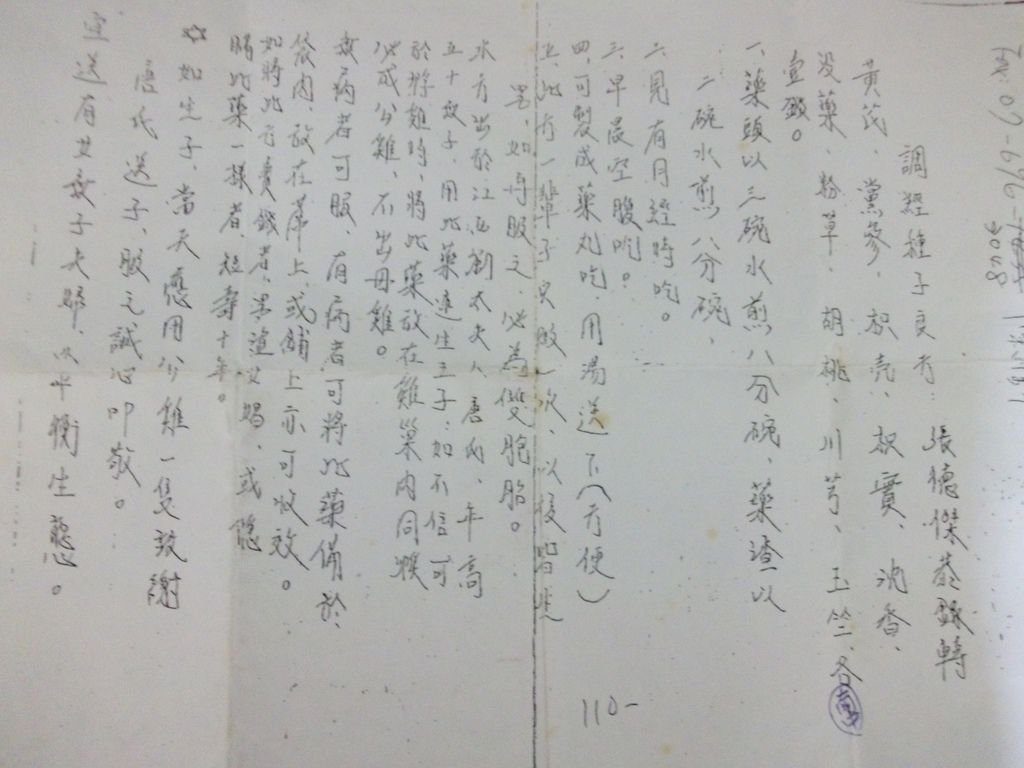 調經種子良方：張德傑恭錄轉
黃芪、黨參、枳壳、枳實、沈香、
没藥、粉草、胡桃、川芎、玉竺、各
壹錢。
一、藥頭以三碗水煎八分碗、藥渣以
二碗水煎八分碗、
二、見有月經時吃。
三、早晨空腹吃。
四、可製成藥丸吃、用湯送下(方便)
五、此方一輩子只做一次、以後皆生
男、如再服之、必為雙胞胎。
水方出於江西劉太夫人唐氏、年高
五十放子、用此藥連生三子、如不信可
於孵雞時、將此藥放在雞巢內同孵
必成公雞、不出母雞。
無病者可服、有病者可將此藥備於
袋內、放在蓆上、或舖上亦可收效。
如將此方賣錢者、男盜女娼、或隱
瞞此藥一樣者、短壽十年。
如生子、當天應用公雞一隻致謝
唐氏送子、服之誠心叩敬。
定送有女無子夫婦、以平衡生態。
110-